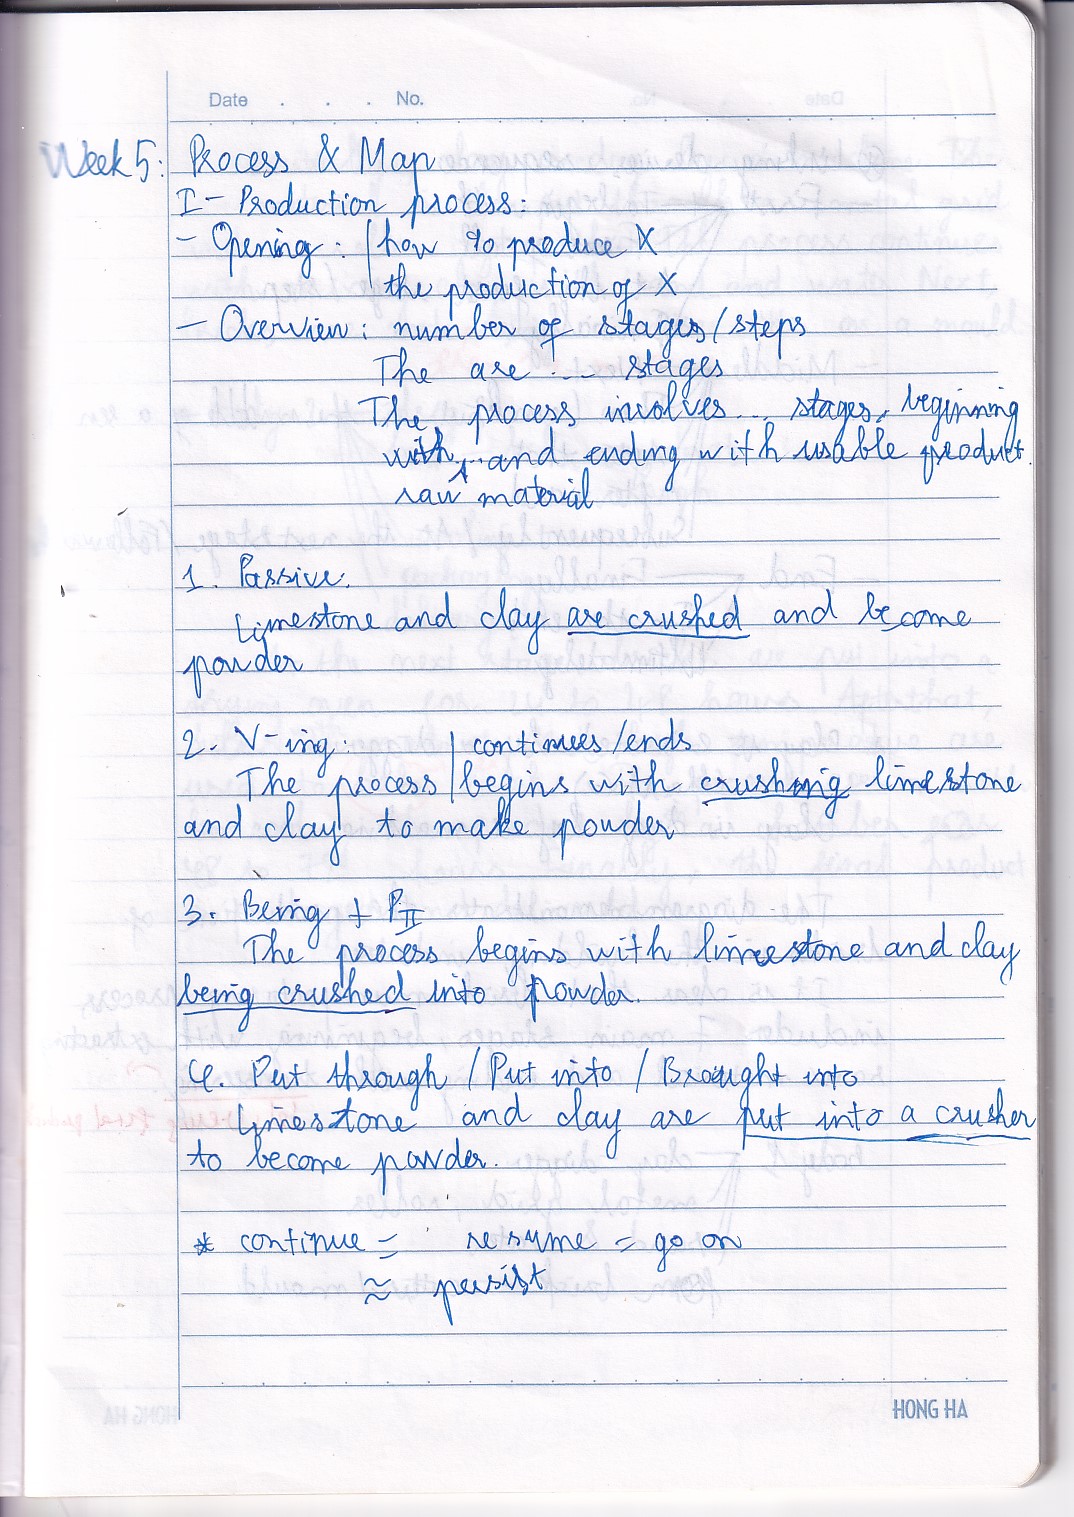 Date . . . No.
Week 5: Process & Map
I - Production process:
- Opening: how to produce X
the production of X
- Overview: number of stages/steps
The are ... stages
The process involves ... stages, beginning
with ... and ending with usable product.
raw material
1. Passive.
Limestone and clay are crushed and become
powder
2. V-ing: continues/ends
The process begins with crushing limestone
and clay to make powder
3. Being + PII
The process begins with limestone and clay
being crushed into powder.
4. Put through / Put into / Brought into
Limestone and clay are put into a crusher
to become powder.
* continue = resume = go on
≈ persist
HONG HA